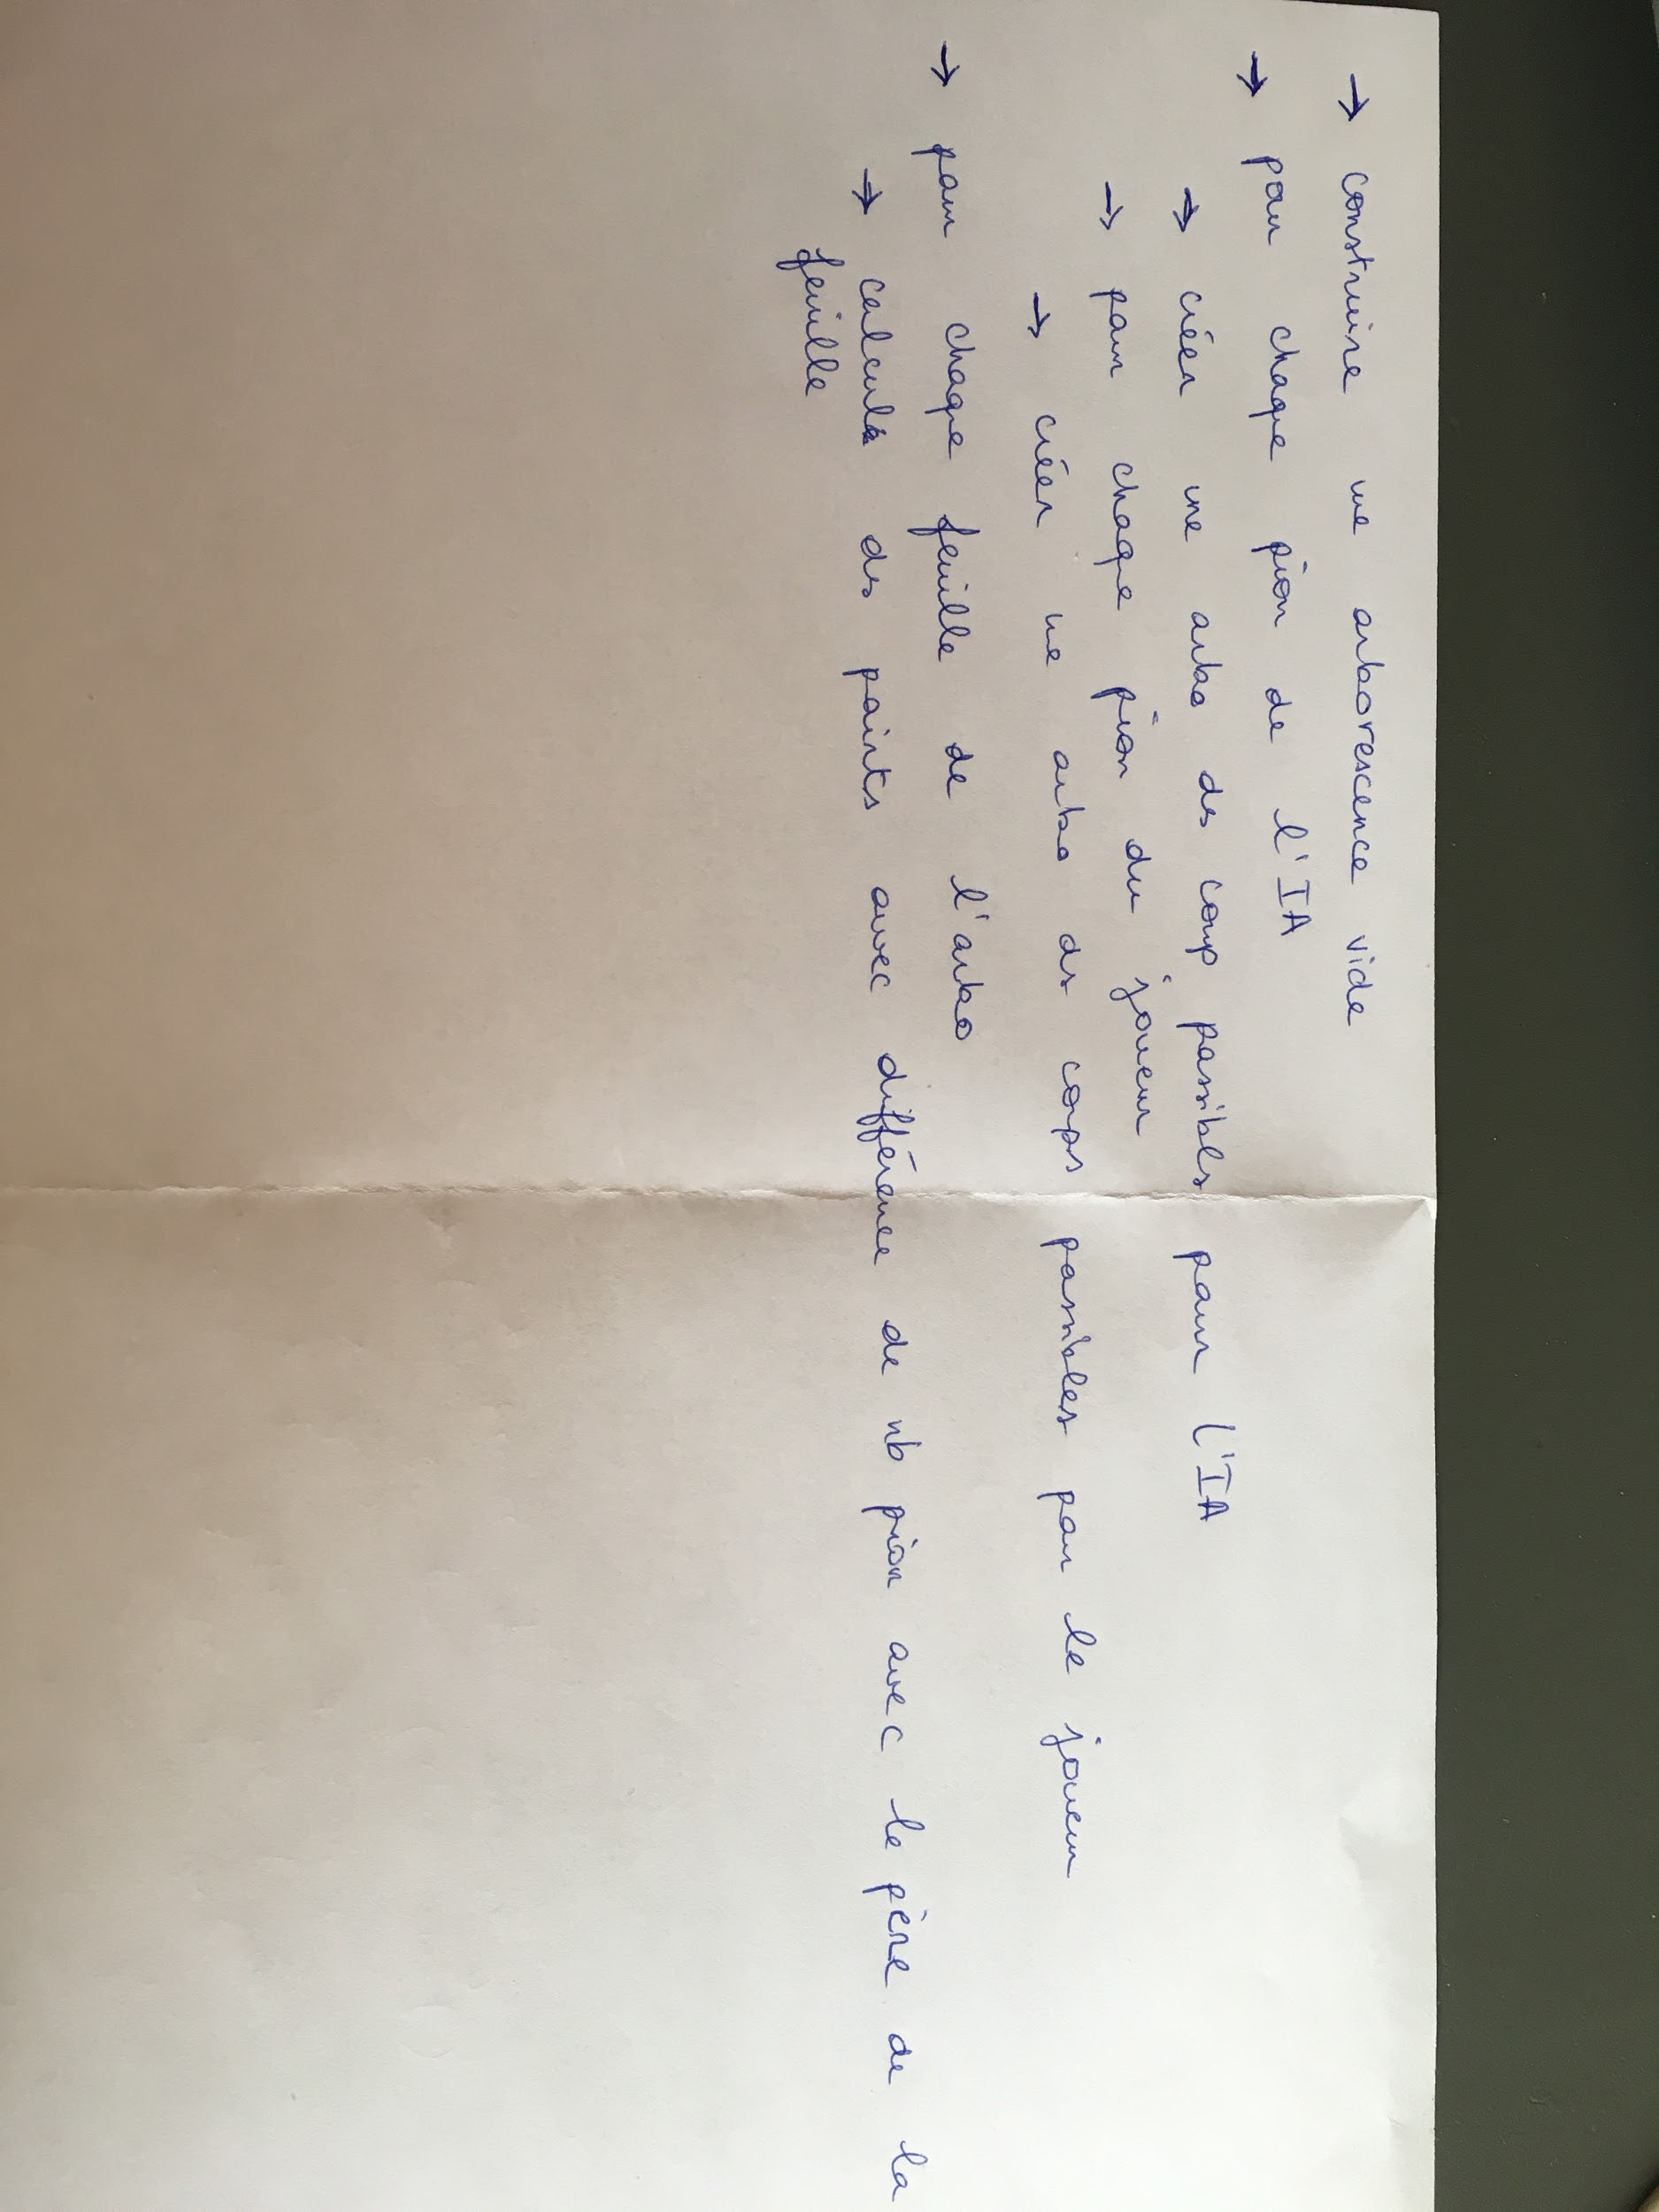 → construire une arborescence vide
→ pour chaque pion de l'IA
→ créer une arbo des coup possibles pour l'IA
→ pour chaque pion du joueur
→ créer une arbo des coups possibles par le joueur
→ pour chaque feuille de l'arbo
→ calculs des points avec différence de nb pion avec le père de la
feuille